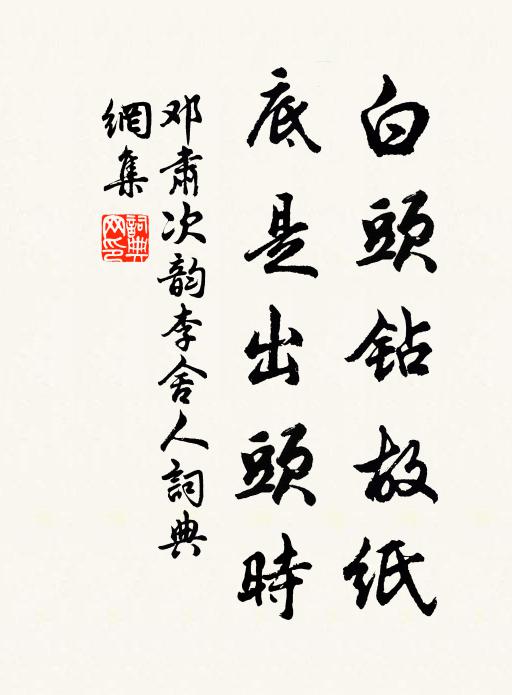 白頭鉆故紙
底是出頭時
邓肅次韵李舍人詞典
網集
詞典
网印